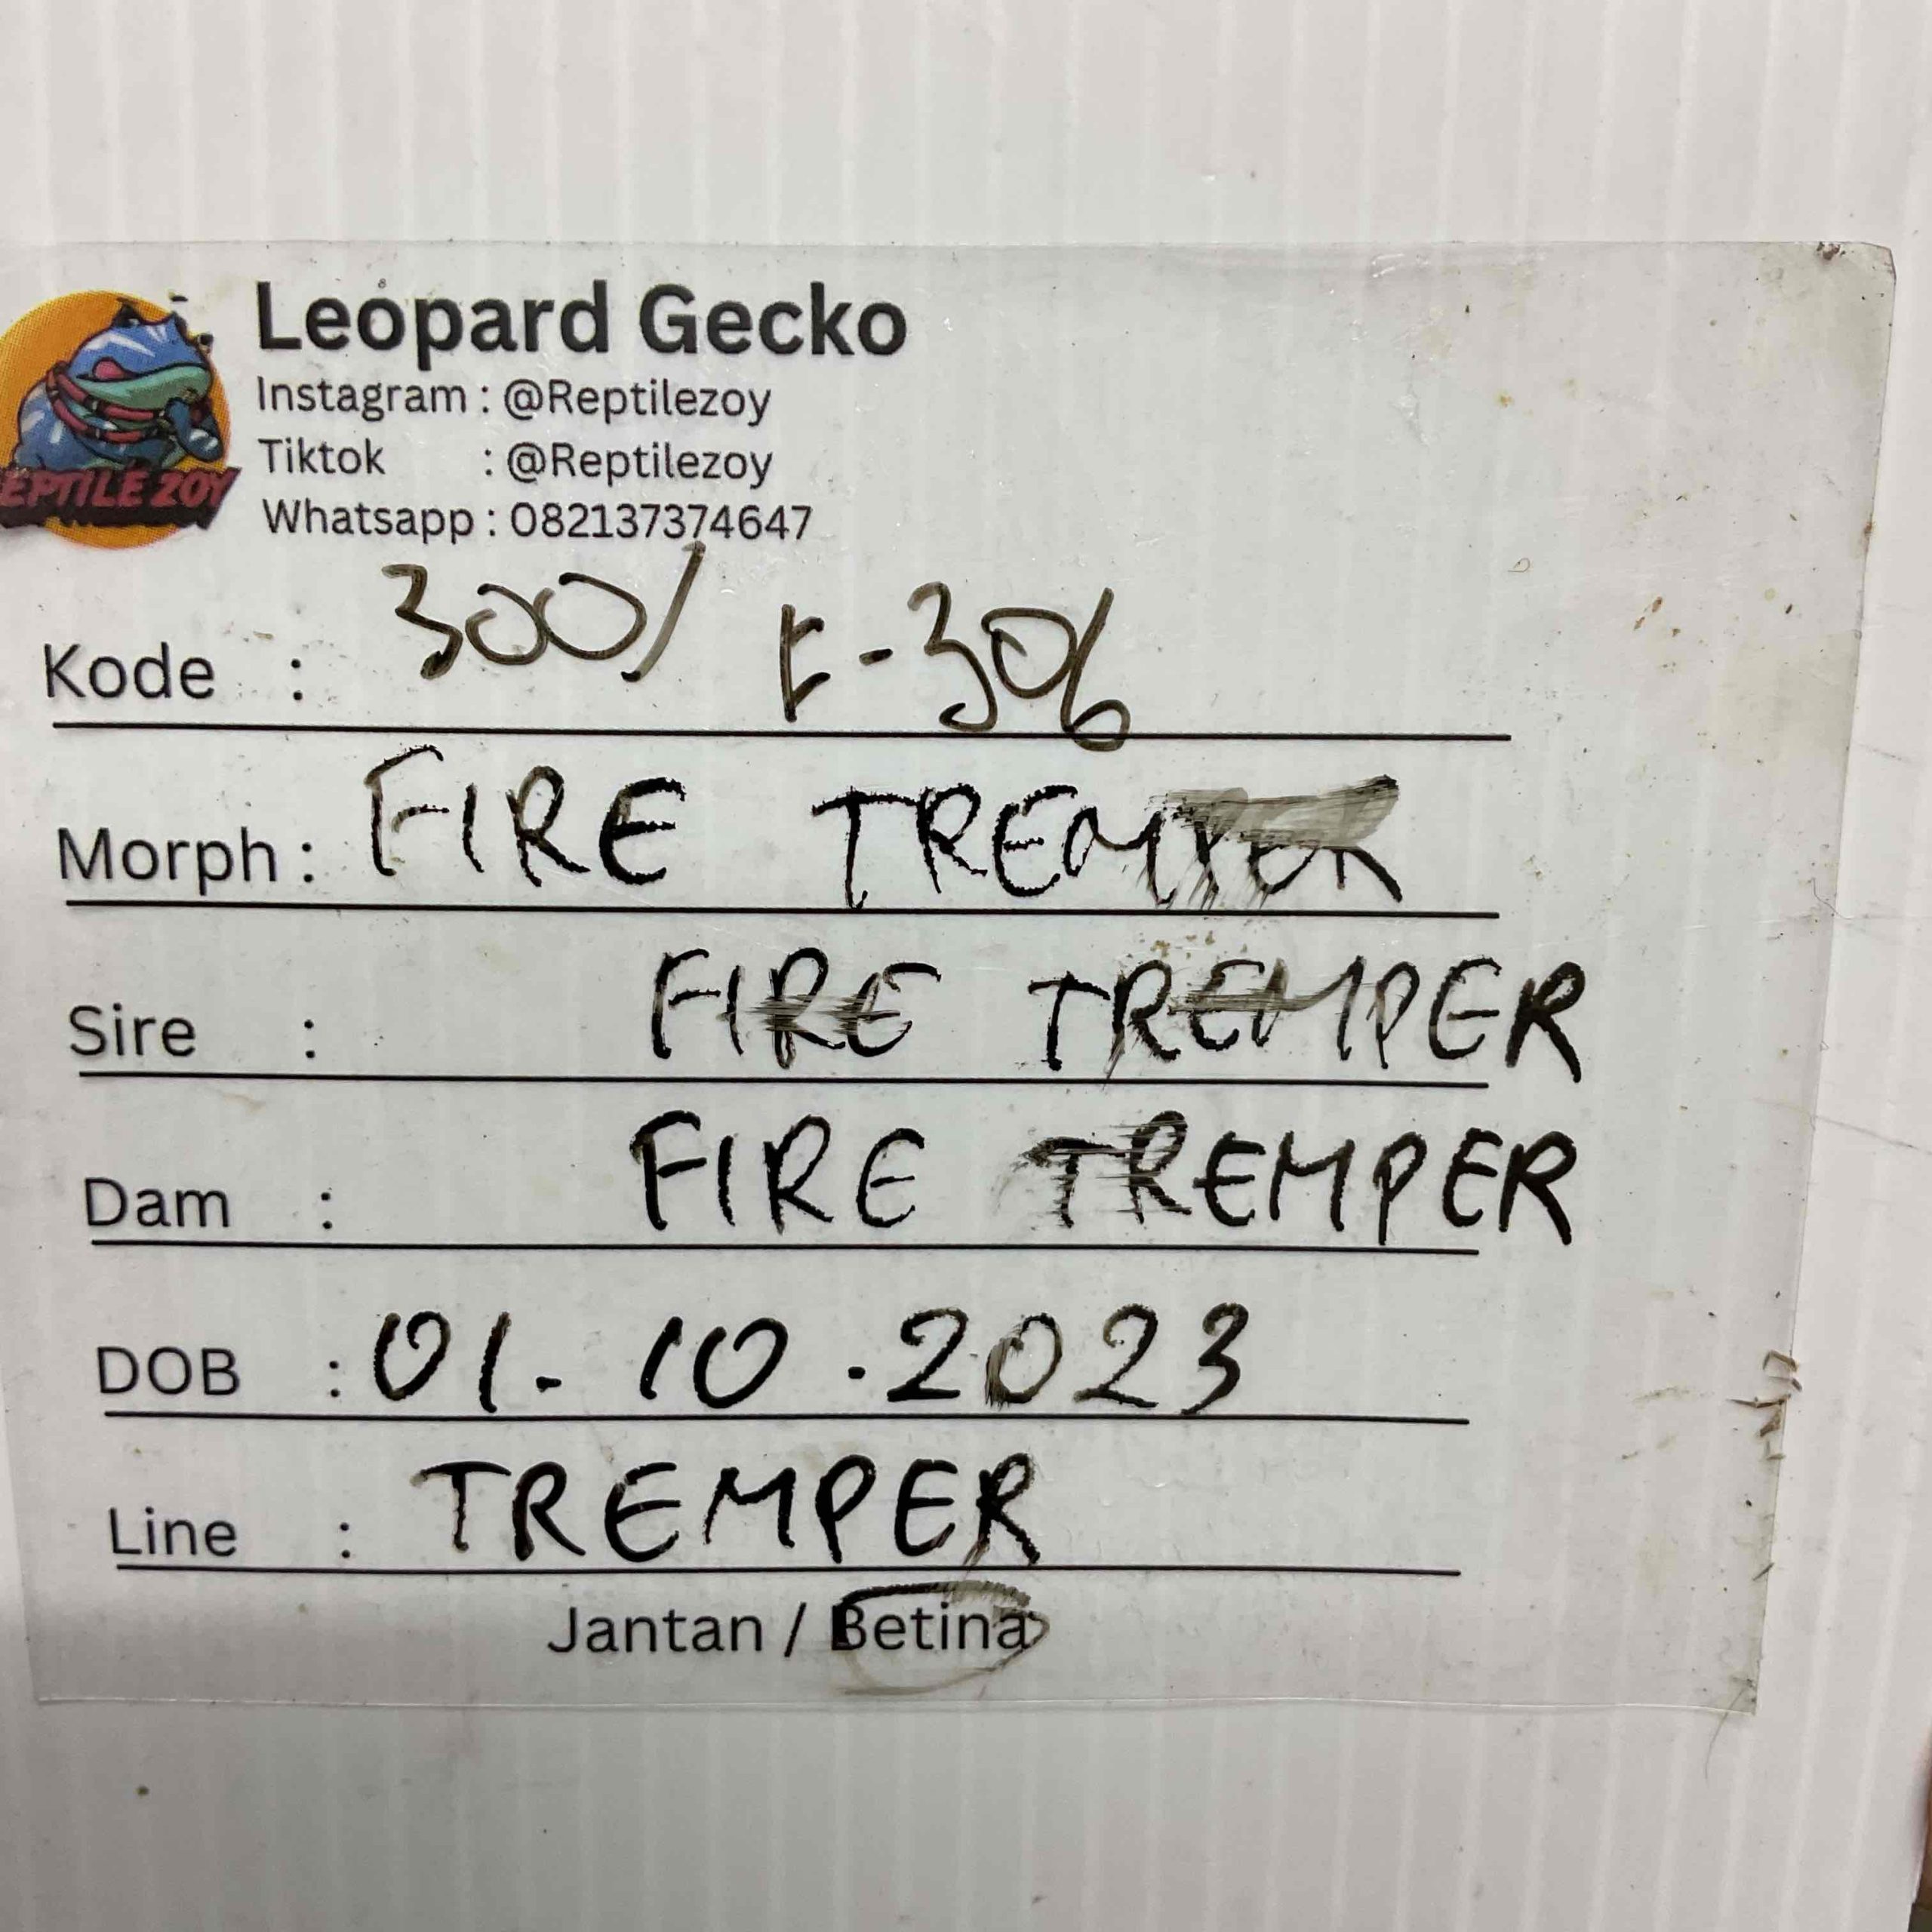 Leopard Gecko
Instagram : @Reptilezoy
Tiktok : @Reptilezoy
EPTILE ZOY
Whatsapp : 082137374647
Kode : 300/ E-306
Morph : FIRE TREMPER
Sire : FIRE TREMPER
Dam : FIRE TREMPER
DOB : 01.10.2023
Line : TREMPER
Jantan / Betina